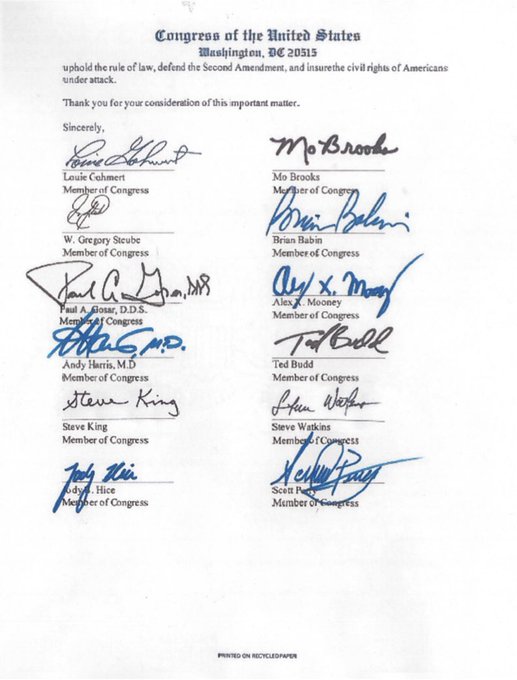 Congress of the United States
Washington, DC 20515
uphold the rule of law, defend the Second Amendment, and insurethe civil rights of Americans
under attack.
Thank you for your consideration of this important matter.
Sincerely,
Louie Gohmert
Mo Brooks
Louie Gohmert
Mo Brooks
Member of Congress
Member of Congress
Brian Babin
W. Gregory Steube
Brian Babin
Member of Congress
Member of Congress
Paul A. Gosar, DDS
Alex X. Mooney
Paul A. Gosar, D.D.S.
Alex X. Mooney
Member of Congress
Member of Congress
M.D.
Ted Budd
Andy Harris, M.D
Ted Budd
Member of Congress
Member of Congress
Steve King
Steve Watkins
Steve King
Steve Watkins
Member of Congress
Member of Congress
Jody Hice
Scott Perry
Jody B. Hice
Scott Perry
Member of Congress
Member of Congress
PRINTED ON RECYCLED PAPER